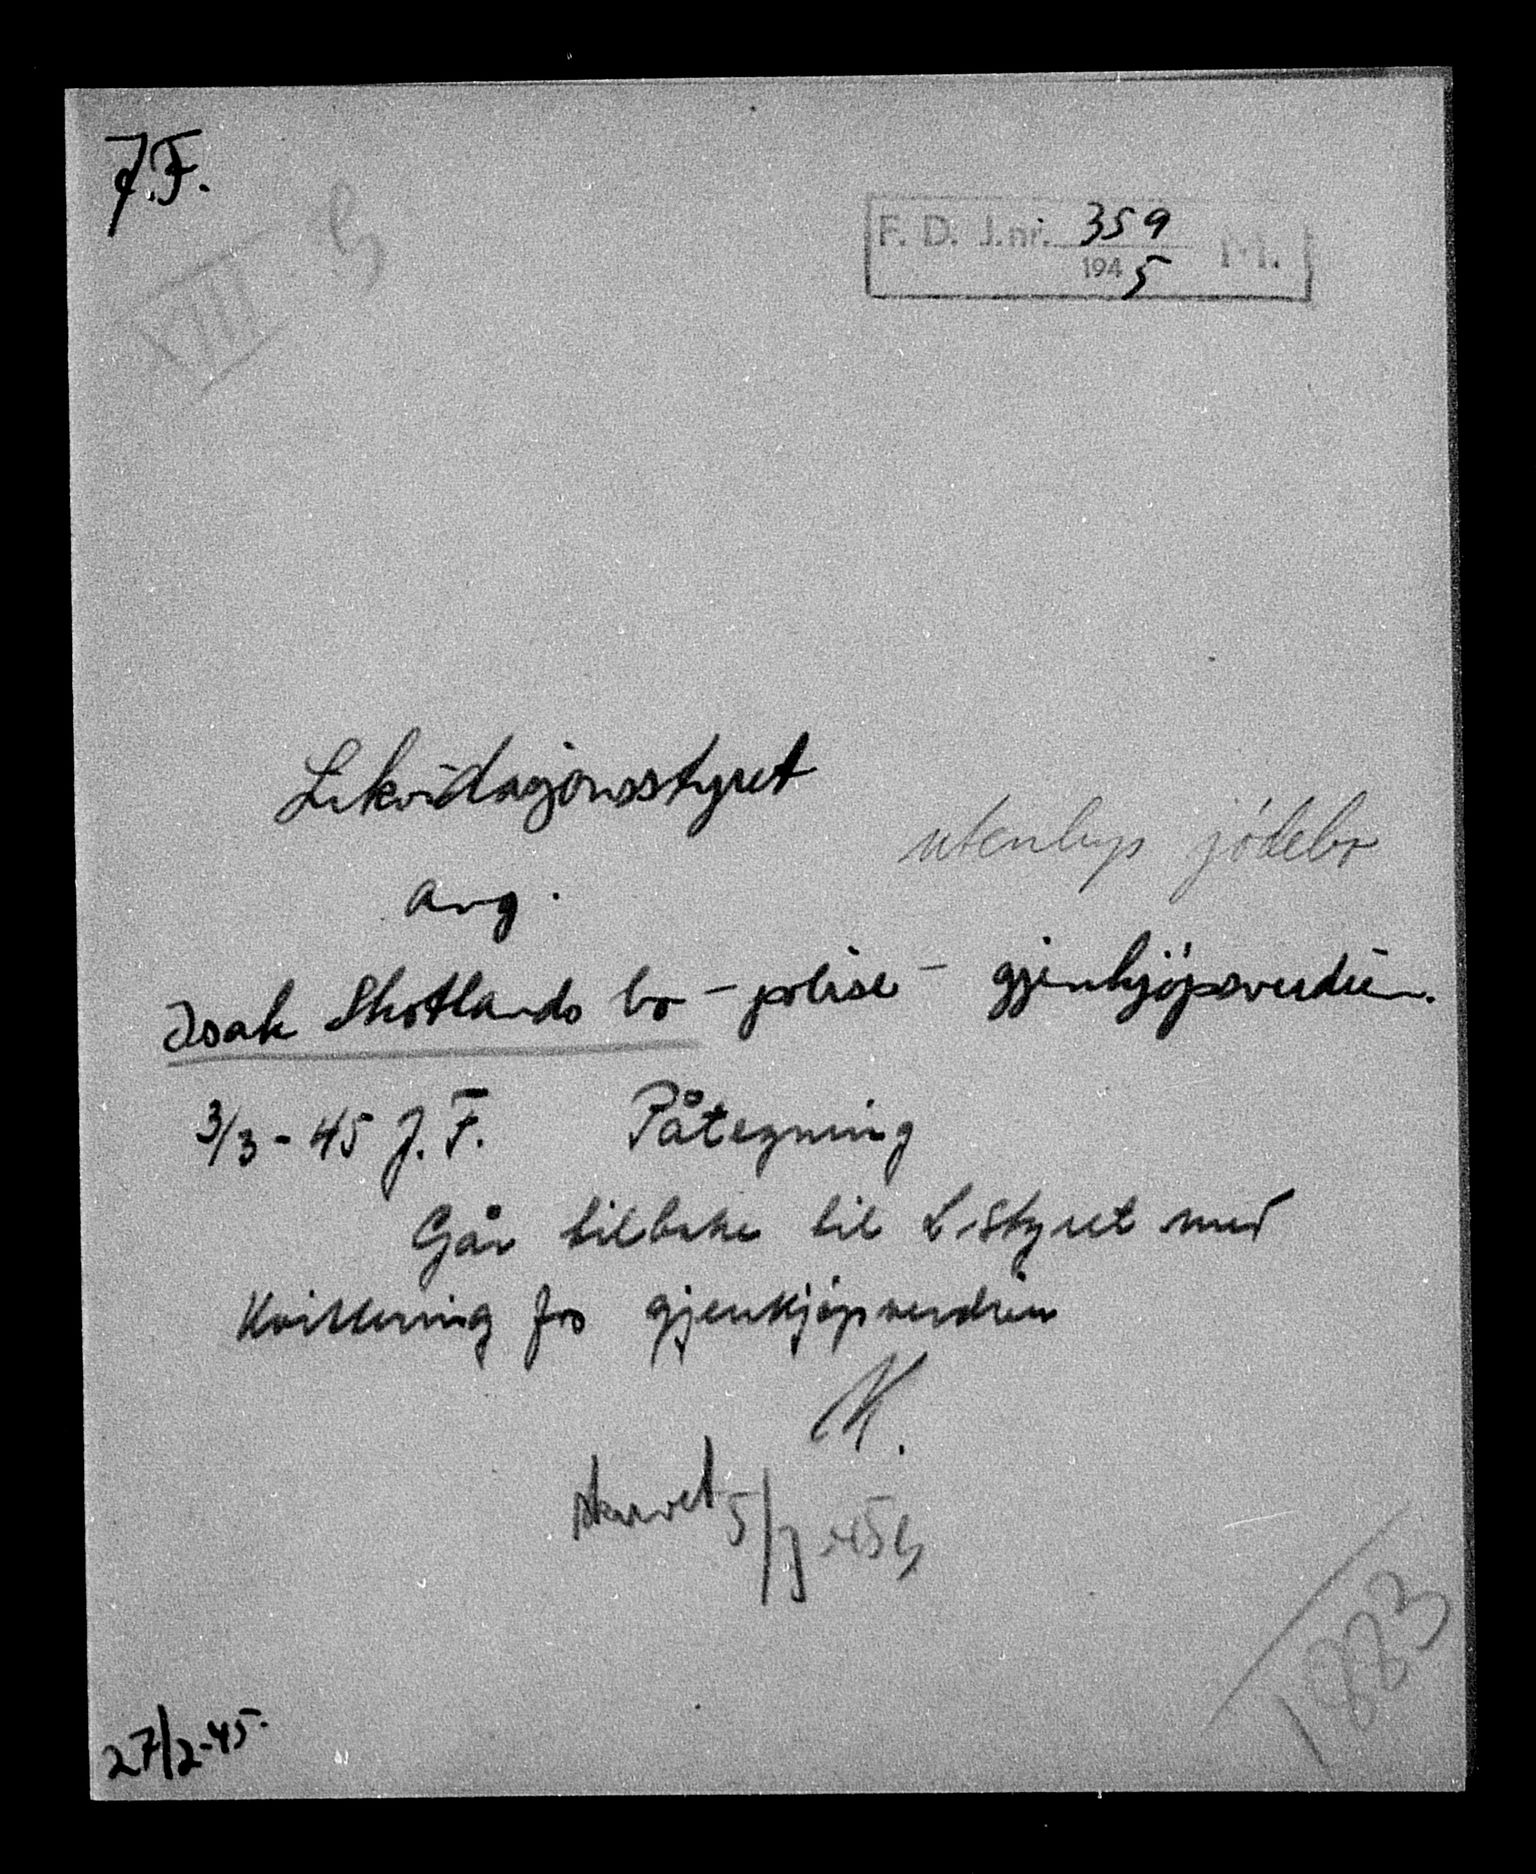 J.F.
XVIII
F. D. J.nr. 359 M.
1945
Likvidasjonsstyret
utenbys jødebo
ang.
Isak Shotlands bo - polise - gjenkjøpsverdien.
3/3-45 J.F. Påtegning
Går tilbake til L-styret med
Kvittering for gjenkjøpsverdien
K.
skrevet 5/3-45
1883
27/2-45.